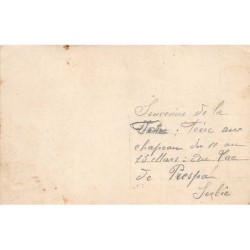 Souvenir de la
Fête : Foire au
chapeau du 11 au
13 Mars : Au Lac
de Prespa
Serbie